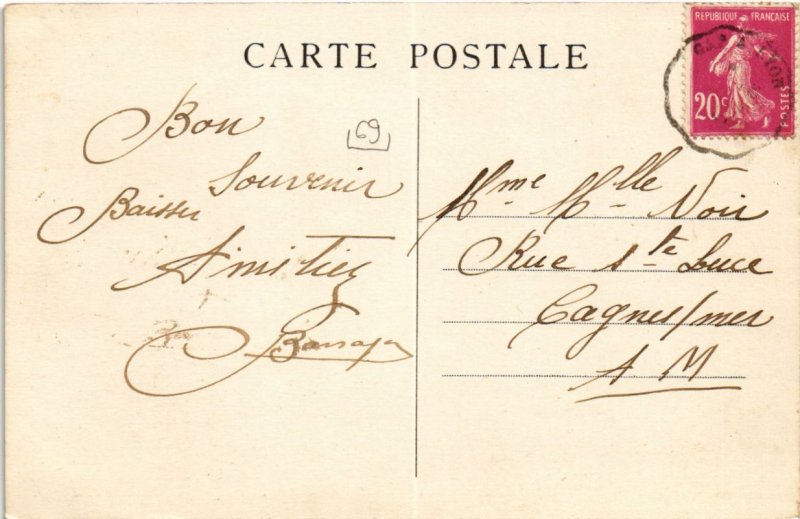 CARTE POSTALE
REPUBLIQUE FRANÇAISE
20c
POSTES
69
Bon
Souvenir
Baisser
Amitiez
Mme Mlle Noir
Rue Ste Luce
Cagnes/mer
A M